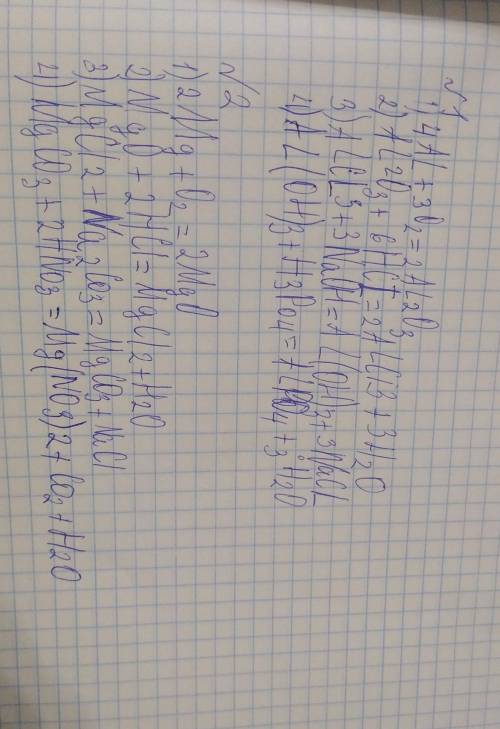 №1
1) 4AL + 3O2 = 2AL2O3
2) AL2O3 + 6HCL = 2ALCl3 + 3H2O
3) ALCL3 + 3NaOH = AL(OH)3 + 3NaCL
4) AL(OH)3 + H3PO4 = ALPO4 + 3H2O
№2
1) 2Mg + O2 = 2MgO
2) MgO + 2HCl = MgCl2 + H2O
3) MgCl2 + Na2CO3 = MgCO3 + NaCl
4) MgCO3 + 2HNO3 = Mg(NO3)2 + CO2 + H2O